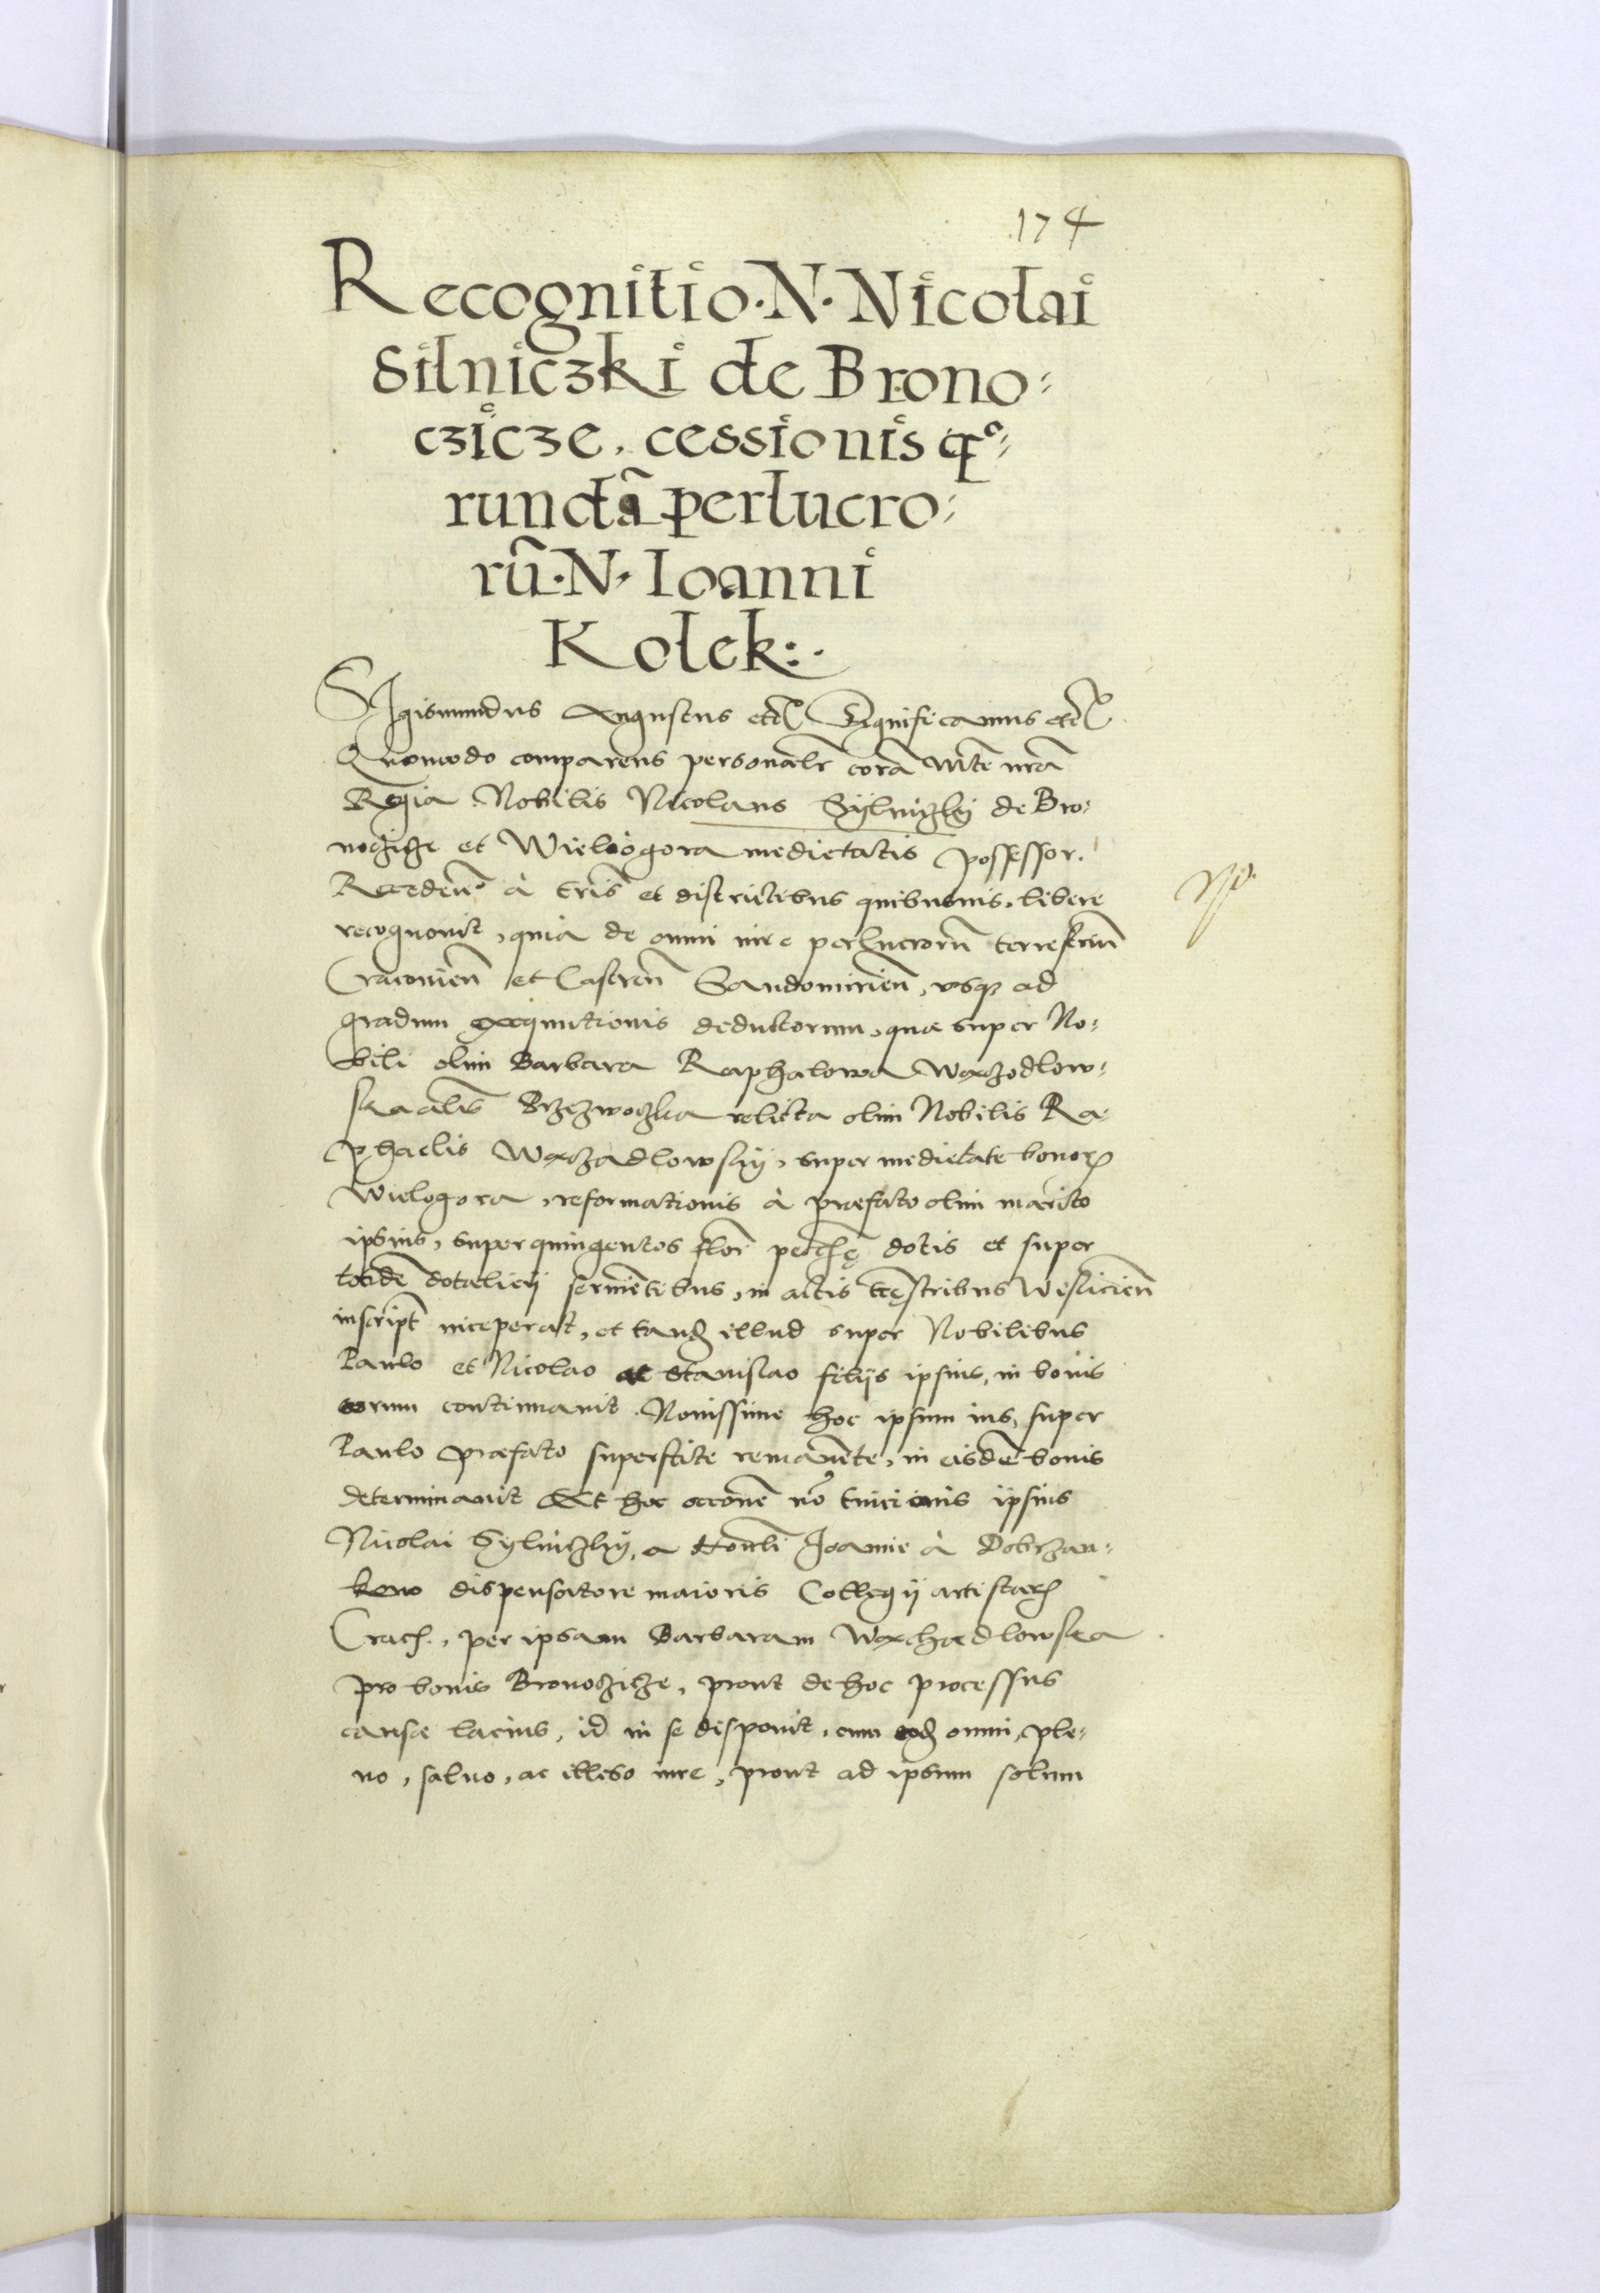 174
Recognitio · N · Nicolai
Silniczki de Brono⸗
cziczе, cessionis qo⸗
rundã perlucro⸗
rũ · N · Ioanni
Kolek:·
SIgismundus Augustus etc Significamus etc
Quomodo comparens personalr corã Mte nrã
Regia Nobilis Nicolaus Sÿlniczkÿ de Bro⸗
noczicze et Wielogora medietatis possessor.
Recedeñ à tris et districtibus quibusuis, libere
recognouit, quia de omni iure perlucrorũ terrestriũ
Cracouieñ et Castreñ Sandomirieñ, vsq3 ad
gradum exequutionis deductorum, quæ super No⸗
bili olim Barbara Raphalowa Woxczodlow⸗
ska als Brzezwoczka relicta olim Nobilis Ra⸗
phaelis Woxczadlowskÿ, super medietate bonor
Wielogora, reformationis à præfato olim marito
ipsius, super quingentos flor pecę dotis et super
totidẽ dotalicij seruiẽtibus, in actis tręstribus Wislicieñ
inscript inceperat, et tand illud super Nobilibus
Paulo et Nicolao ac Stanislao filijs ipsius, in bonis
eorum continuauit. Nouissime hoc ipsum ius, super
Paulo præfato superstite remanẽte, in eisdẽ bonis
determinauit Et hoc occonẽ nõ tuicionis ipsius
Nicolai Sylniczkÿ, a Honli Joanne à Dobczan⸗
kow dispensatore maioris Collegij artistar
Crac., per ipsam Barbaram Woxchadlowska
pro bonis Bronoczicze, prout de hoc processus
causæ lacius, id in se disponit, cum eod omni, ple⸗
no, saluo, ac illeso iure, prout ad ipsum solum